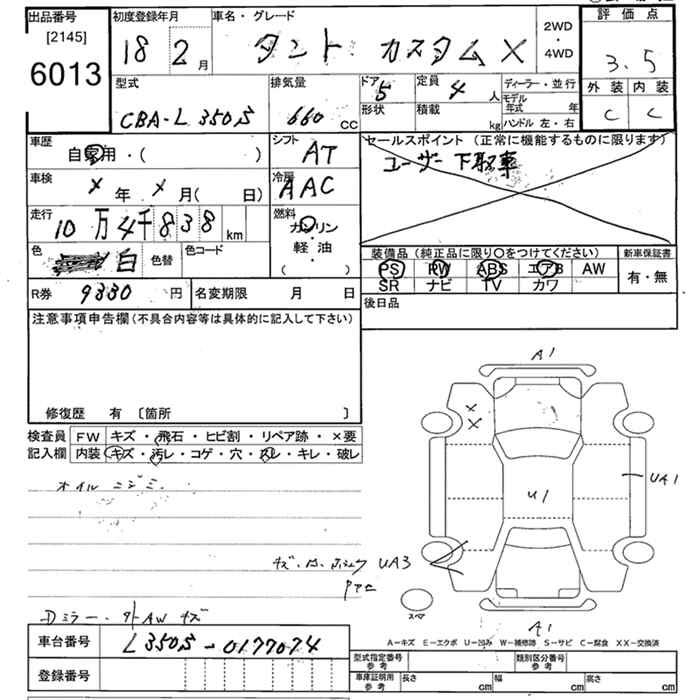 出品番号 初度登録年月 車名・グレード 評価点
[2145] 6013
18 2月 タント カスタム X
2WD・4WD
3.5
型式 CBA-L350S
排気量 660cc
ドア 5 定員 4人
形状 積載 kg
ディーラー・並行
モデル年式 年
ハンドル 左・右
外装 内装
C C
車歴 自家用・( )
シフト AT
セールスポイント (正常に機能するものに限ります)
ユーザー下取車
車検 × 年 × 月( 日)
冷房 AAC
走行 10万4千838km
燃料 ガソリン・軽油 ( )
色 白 色替 色コード
装備品 (純正品に限り○をつけてください) 新車保証書
PS PW ABS エアB AW 有・無
SR ナビ TV カワ
R券 9880円 名変期限 月 日
後日品
注意事項申告欄(不具合内容等は具体的に記入して下さい)
修復歴 有 〔箇所 〕
検査員記入欄
FW キズ・飛石・ヒビ割・リペア跡・×要
内装 キズ・汚レ・コゲ・穴・スレ・キレ・破レ
オイルニジミ
A1
×
×
U1
UA1
UA3
スペア
A1
Dミラー・外AWキズ
A−キズ E−エクボ U−凹み W−補修跡 S−サビ C−腐食 XX−交換済
車台番号 L350S-0177074
登録番号
型式指定番号 参考 類別区分番号 参考
車庫証明用 参考 長さ cm 幅 cm 高さ cm